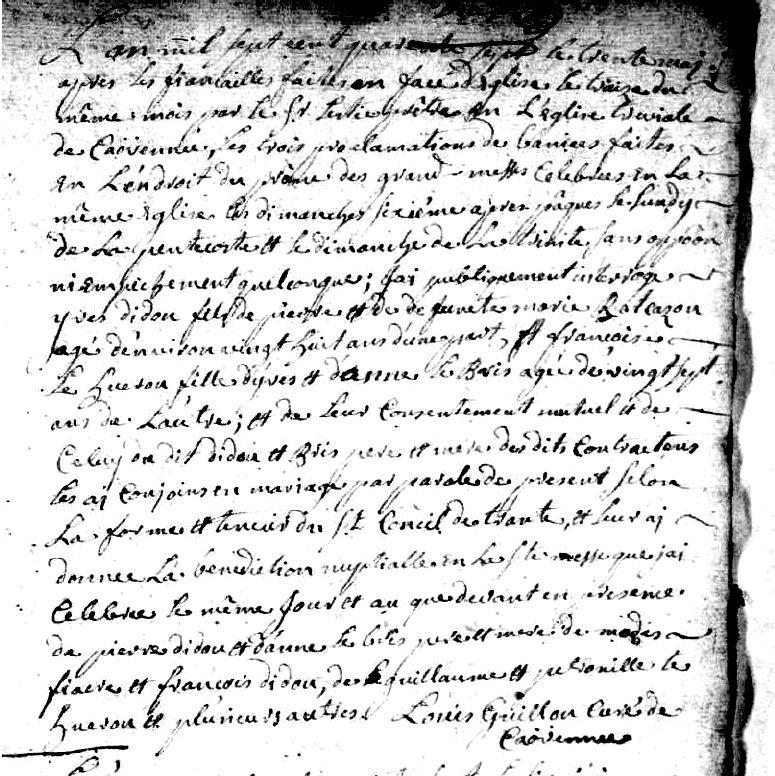 L'an mil sept cent quarente sept le trente mai
apres les fiancailles faites en face D'Eglise le treise du
même mois par le Sr prêtre En L'Eglise treviale
de Caoüennec, les trois proclamations de bannies faites
En L'endroit du prône des grand messes Celebrées En La
même Eglise les dimanches sixiême apres pâques le lundy
de La pentecoste et le dimanche de La trinite sans oppoôn
ni Empechement quelconque; j'ai publiquement interrogé
yves didou fils de pierre et de defuncte marie
agé d'environ vingt huit ans d'une part, et francoise
le hueron fille d'yves et d'anne le Bris agée de vingt sept
ans de L'autre; et de leur Consentement mutuel et de
Celuy du dit didou et Bris pere et mere des dits Contractens
les ai Conjoins en mariage par parole de present selon
La forme et teneur du St Concil de trante, et leur ai
donnee La benediction nuptialle En La ste messe que j'ai
Celebree le même jour et au que devant en presence
de pierre didou et d'anne le bris pere et mere de
fiacre et francois didou, de guillaume et petronille le
hueron et plusieurs autres. Louis Guillou Curé de
Caoüennec